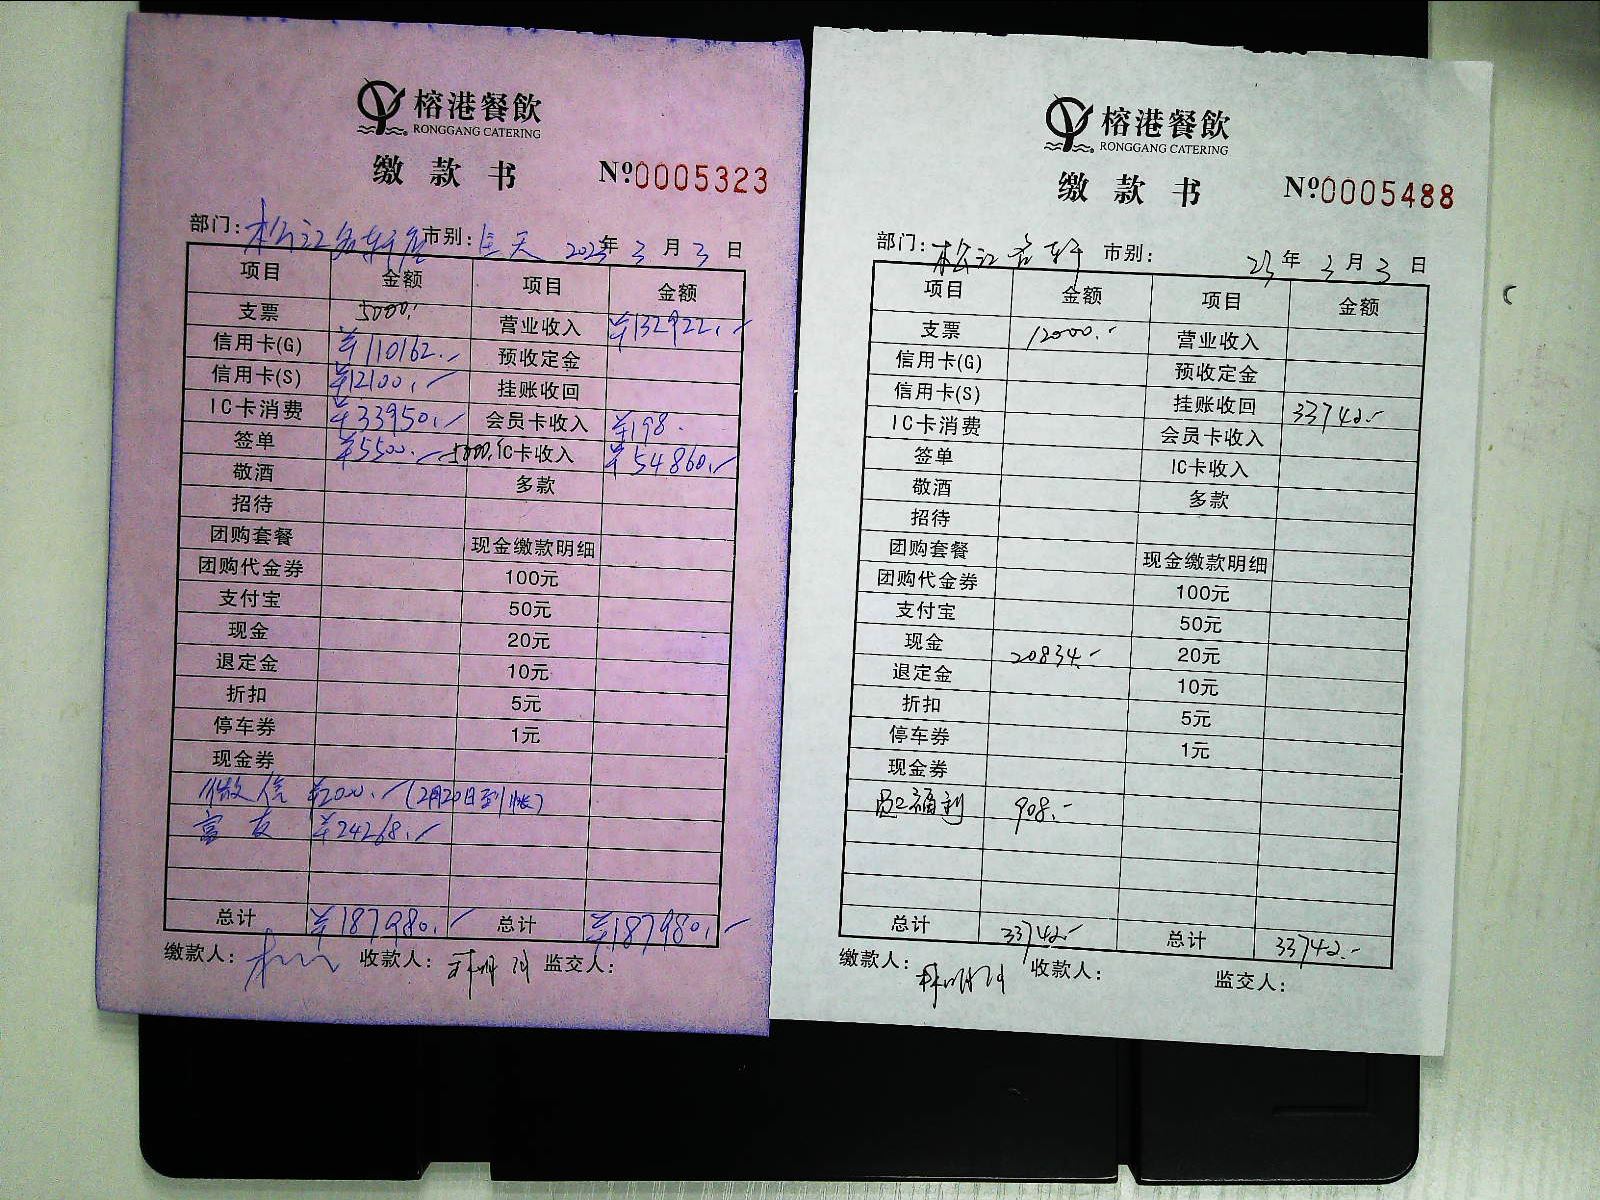 榕港餐飲
RONGGANG CATERING
缴款书 №0005323
部门: 松江名轩店 市别: 全天 2023年3月3日
项目 金额 项目 金额
支票 5000.- 营业收入 ¥132922.-
信用卡(G) ¥110162.- 预收定金
信用卡(S) ¥12100.- 挂账收回
IC卡消费 ¥33950.- 会员卡收入 ¥198.
签单 ¥5500.- 5000. IC卡收入 ¥54860.-
敬酒 多款
招待
团购套餐 现金缴款明细
团购代金券 100元
支付宝 50元
现金 20元
退定金 10元
折扣 5元
停车券 1元
现金券
微信 ¥2000.-(2月20日到帐)
富友 ¥24268.-
总计 ¥187980.- 总计 ¥187980.-
缴款人: 收款人: 监交人:
榕港餐飲
RONGGANG CATERING
缴款书 №0005488
部门: 松江名轩 市别: 23年3月3日
项目 金额 项目 金额
支票 12000.- 营业收入
信用卡(G) 预收定金
信用卡(S) 挂账收回 33742.-
IC卡消费 会员卡收入
签单 IC卡收入
敬酒 多款
招待
团购套餐 现金缴款明细
团购代金券 100元
支付宝 50元
现金 20834.- 20元
退定金 10元
折扣 5元
停车券 1元
现金券
员工福利 908.-
总计 33742.- 总计 33742.-
缴款人: 收款人: 监交人: